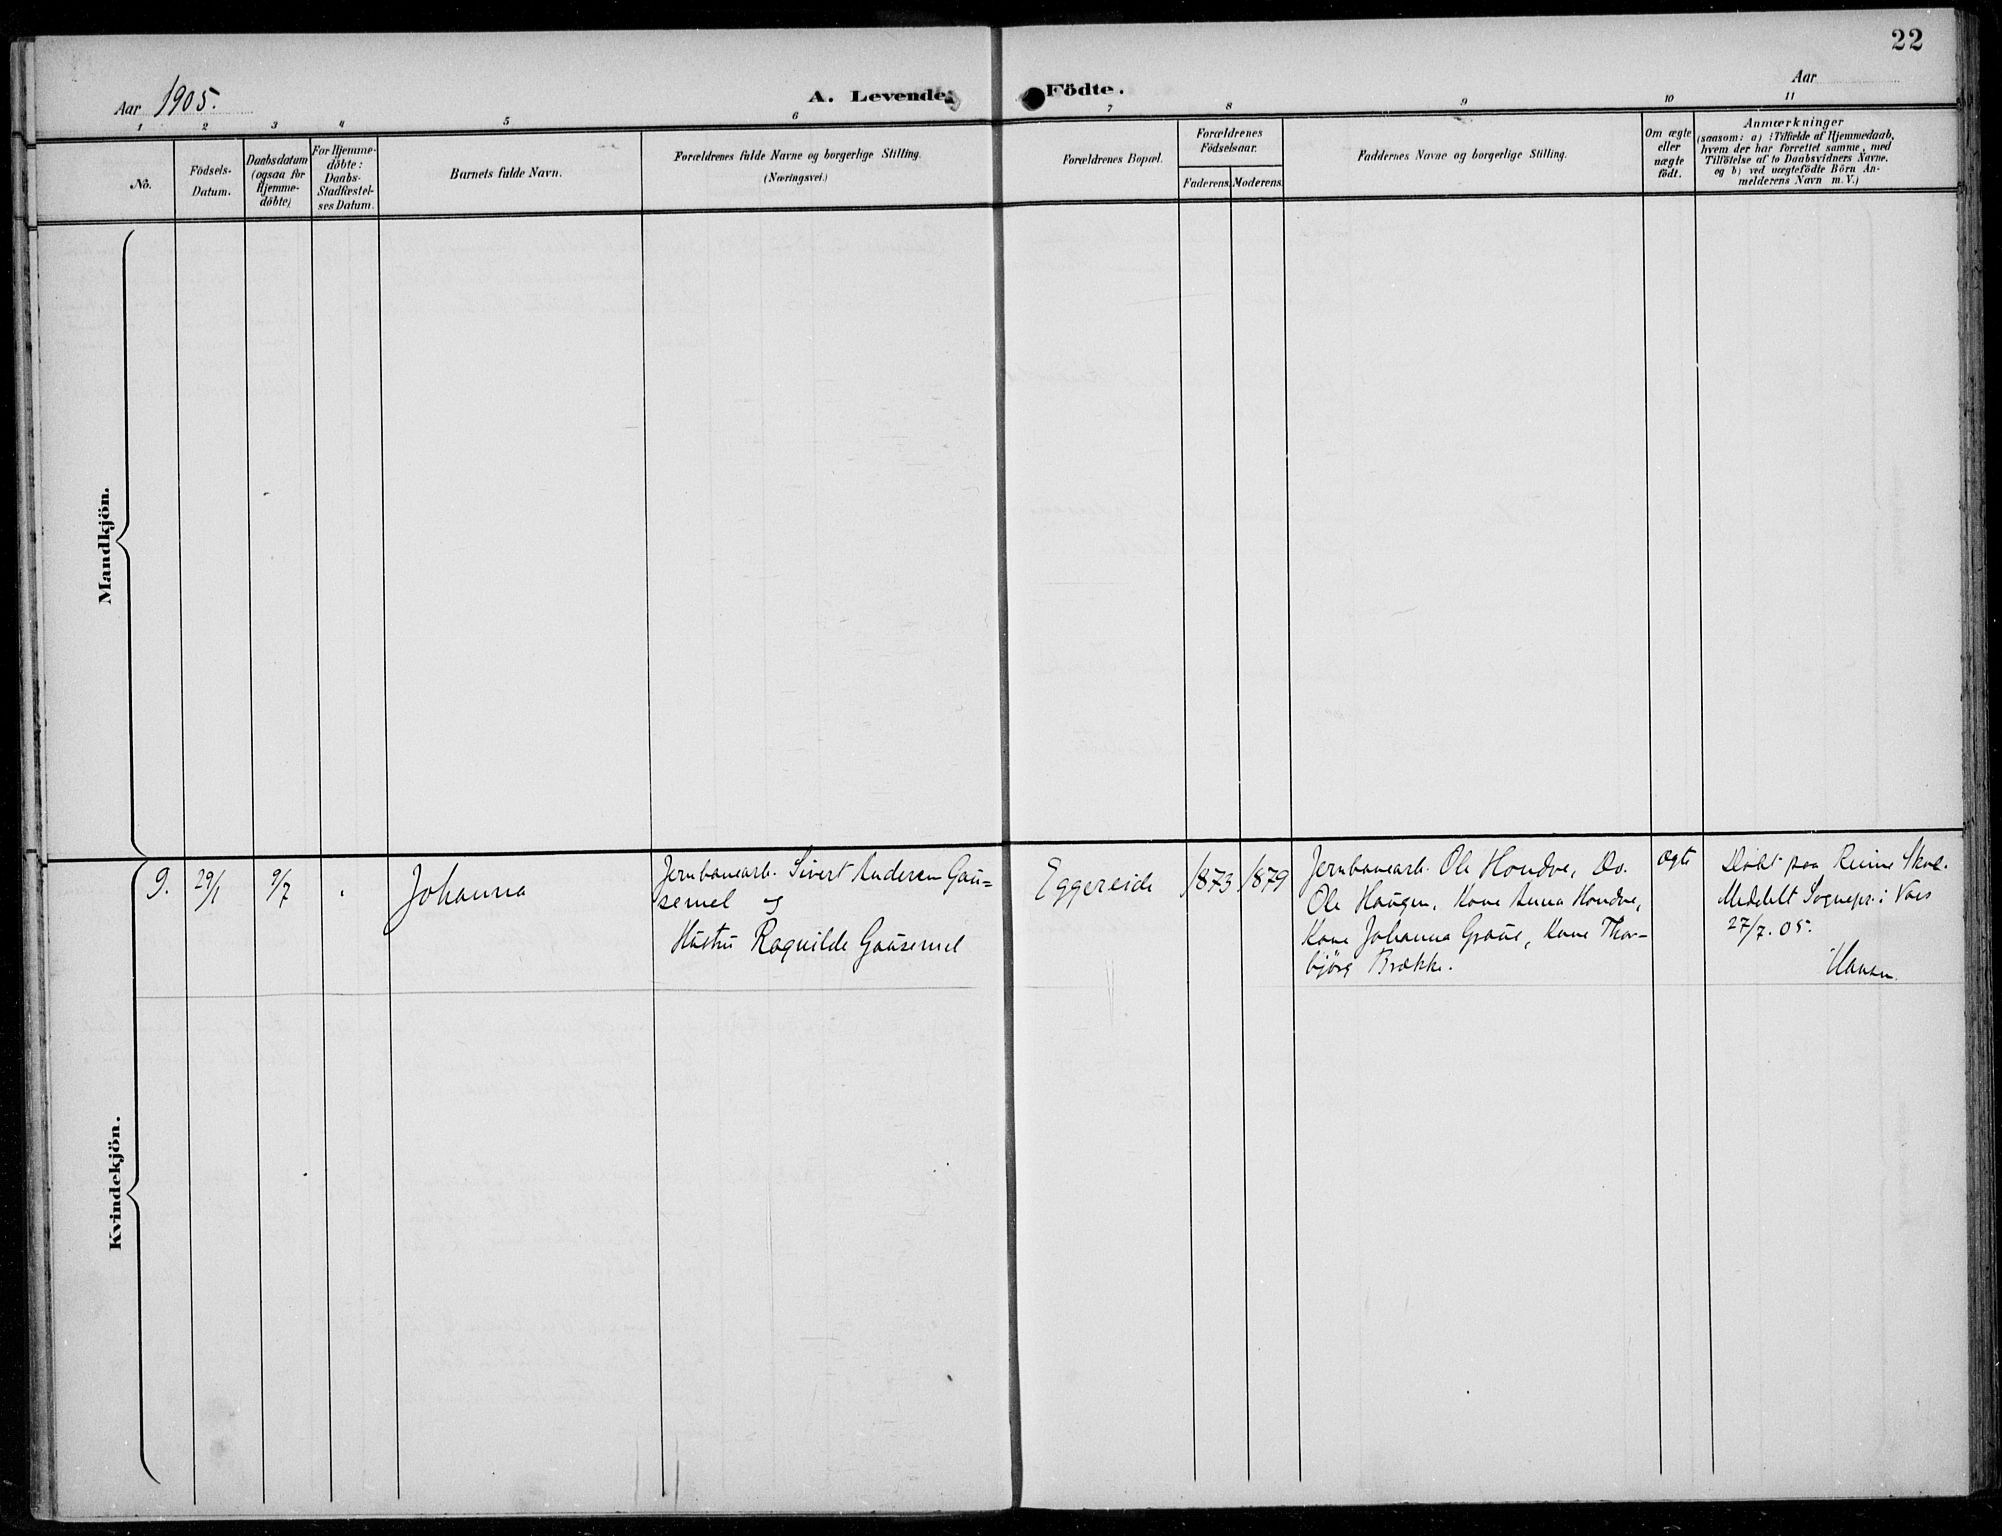 22
Aar 1905. A. Levende Födte. Aar
1 2 3 4 5 6 7 8 9 10 11
No.
Födsels-
Datum.
Daabsdatum
(ogsaa for
Hjemme-
döbte)
For Hjemme-
döbte:
Daabs-
Stadfæstel-
ses Datum.
Barnets fulde Navn.
Forældrenes fulde Navne og borgerlige Stilling.
(Næringsvei.)
Forældrenes Bopæl.
Forældrenes
Födselsaar.
Faderens. Moderens.
Faddernes Navne og borgerlige Stilling.
Om ægte
eller
uægte
födt.
Anmærkninger
(saasom: a) i Tilfælde af Hjemmedaab,
hvem der har forrettet samme, med
Tilföielse af to Daabsvidners Navne.
og b) ved uægtefödte Börn An-
melderens Navn m. V.)
Mandkjön.
Kvindekjön.
9.
29/1
9/7
Johanna
Jernbanearb. Sivert Andersen Gau=
semel og
Hustru Ragnilde Gausemel
Eggereide
1873
1879
Jernbanearb. Ole Hondve, Do.
Ole Haugen, Kone Anna Hondve,
Kone Johanna Graue, Kone Thor-
bjørg Brække.
ægte
Døbt paa Reime Skole.
Meddelt Sognepr. i Vors
27/7. 05.
Hansen